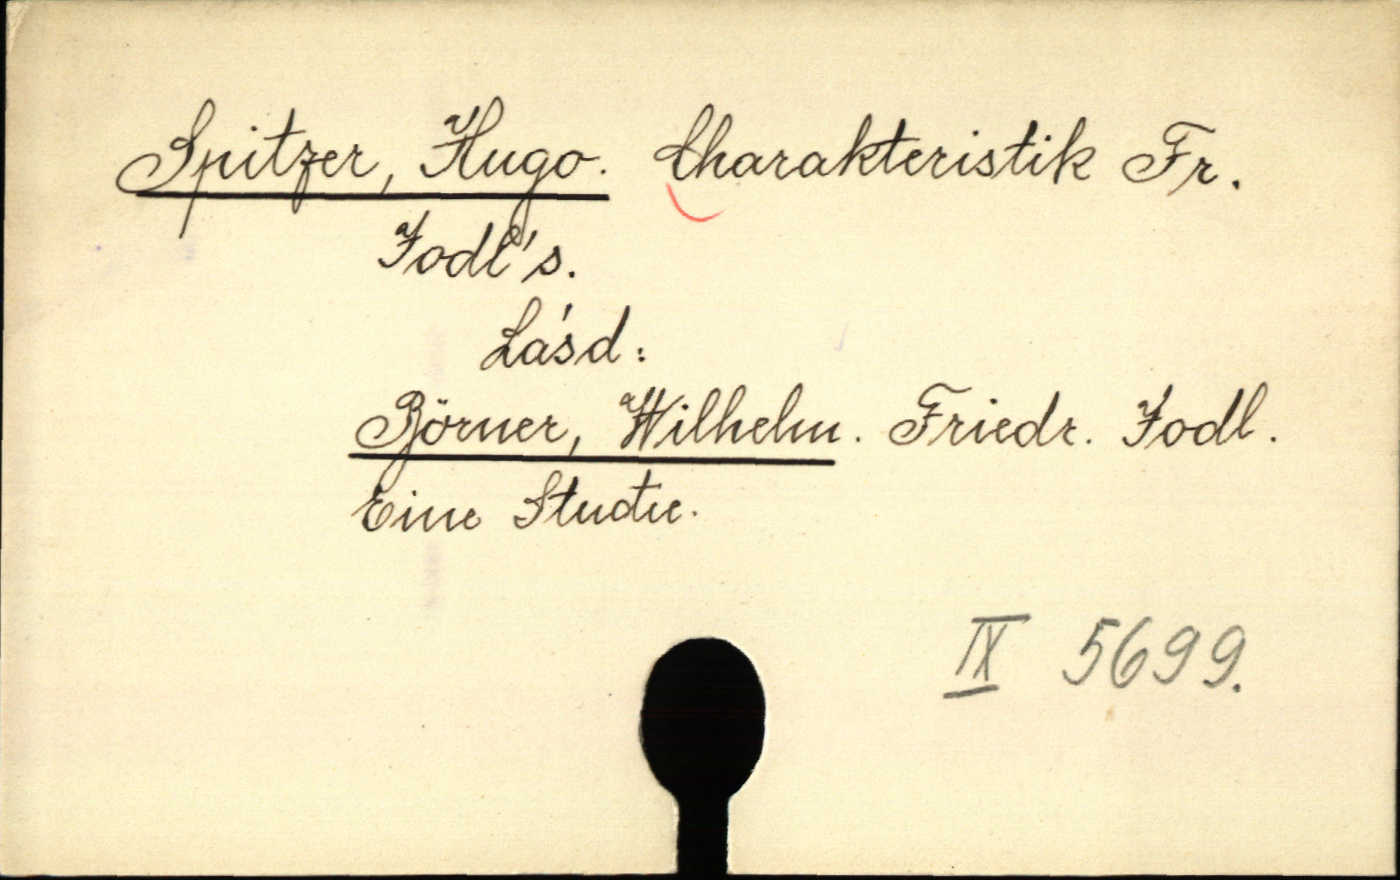 Spitzer, Hugo. Charakteristik Fr.
Jodl's.
Lásd:
Börner, Wilhelm. Friedr. Jodl.
Eine Studie.
IX 5699.